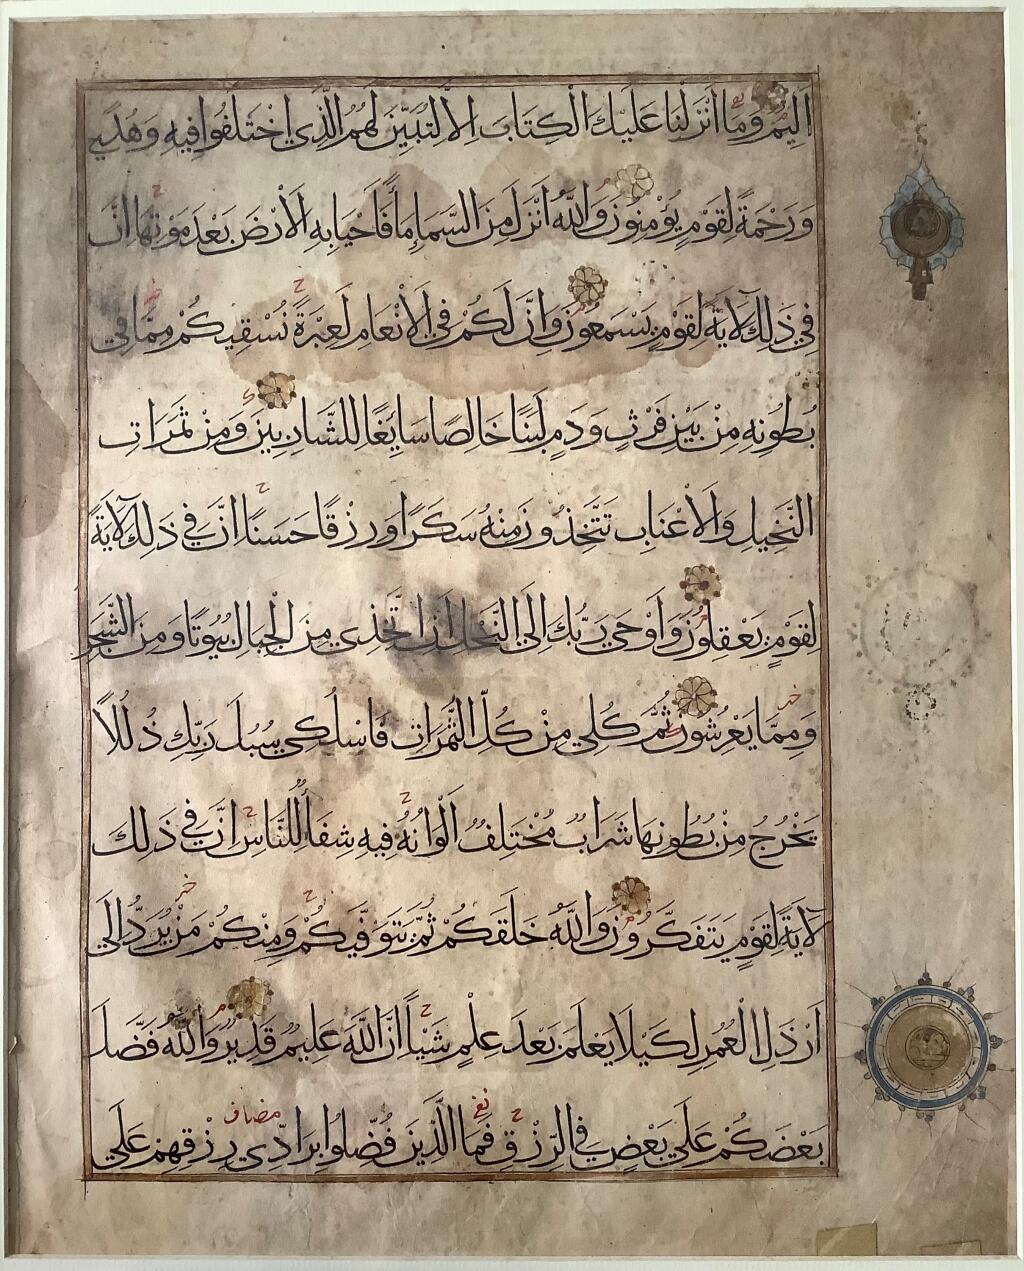 اَلِيمٌ وَمَا اَنْزَلْنَا عَلَيْكَ الْكِتَابَ اِلَّا لِتُبَيِّنَ لَهُمُ الَّذِي اخْتَلَفُوا فِيهِ وَهُدًي
وَرَحْمَةً لِقَوْمٍ يُؤْمِنُونَ وَاللَّهُ اَنْزَلَ مِنَ السَّمَاءِ مَاءً فَاَحْيَا بِهِ الْاَرْضَ بَعْدَ مَوْتِهَا اِنَّ
فِي ذَلِكَ لَآيَةً لِقَوْمٍ يَسْمَعُونَ وَاِنَّ لَكُمْ فِي الْاَنْعَامِ لَعِبْرَةً نُسْقِيكُمْ مِمَّا فِي
بُطُونِهِ مِنْ بَيْنِ فَرْثٍ وَدَمٍ لَبَنًا خَالِصًا سَايِغًا لِلشَّارِبِينَ وَمِنْ ثَمَرَاتِ
النَّخِيلِ وَالْاَعْنَابِ تَتَّخِذُونَ مِنْهُ سَكَرًا وَرِزْقًا حَسَنًا اِنَّ فِي ذَلِكَ لَآيَةً
لِقَوْمٍ يَعْقِلُونَ وَاَوْحَي رَبُّكَ اِلَي النَّحْلِ اَنِ اتَّخِذِي مِنَ الْجِبَالِ بُيُوتًا وَمِنَ الشَّجَرِ
وَمِمَّا يَعْرِشُونَ ثُمَّ كُلِي مِنْ كُلِّ الثَّمَرَاتِ فَاسْلُكِي سُبُلَ رَبِّكِ ذُلُلًا
يَخْرُجُ مِنْ بُطُونِهَا شَرَابٌ مُخْتَلِفٌ اَلْوَانُهُ فِيهِ شِفَاءٌ لِلنَّاسِ اِنَّ فِي ذَلِكَ
لَآيَةً لِقَوْمٍ يَتَفَكَّرُونَ وَاللَّهُ خَلَقَكُمْ ثُمَّ يَتَوَفَّيكُمْ وَمِنْكُمْ مَنْ يُرَدُّ اِلَي
اَرْذَلِ الْعُمُرِ لِكَيْلَا يَعْلَمَ بَعْدَ عِلْمٍ شَيْاً اِنَّ اللَّهَ عَلِيمٌ قَدِيرٌ وَاللَّهُ فَضَّلَ
مضاف
بَعْضَكُمْ عَلَي بَعْضٍ فِي الرِّزْقِ فَمَا الَّذِينَ فُضِّلُوا بِرَادِّي رِزْقِهِمْ عَلَي